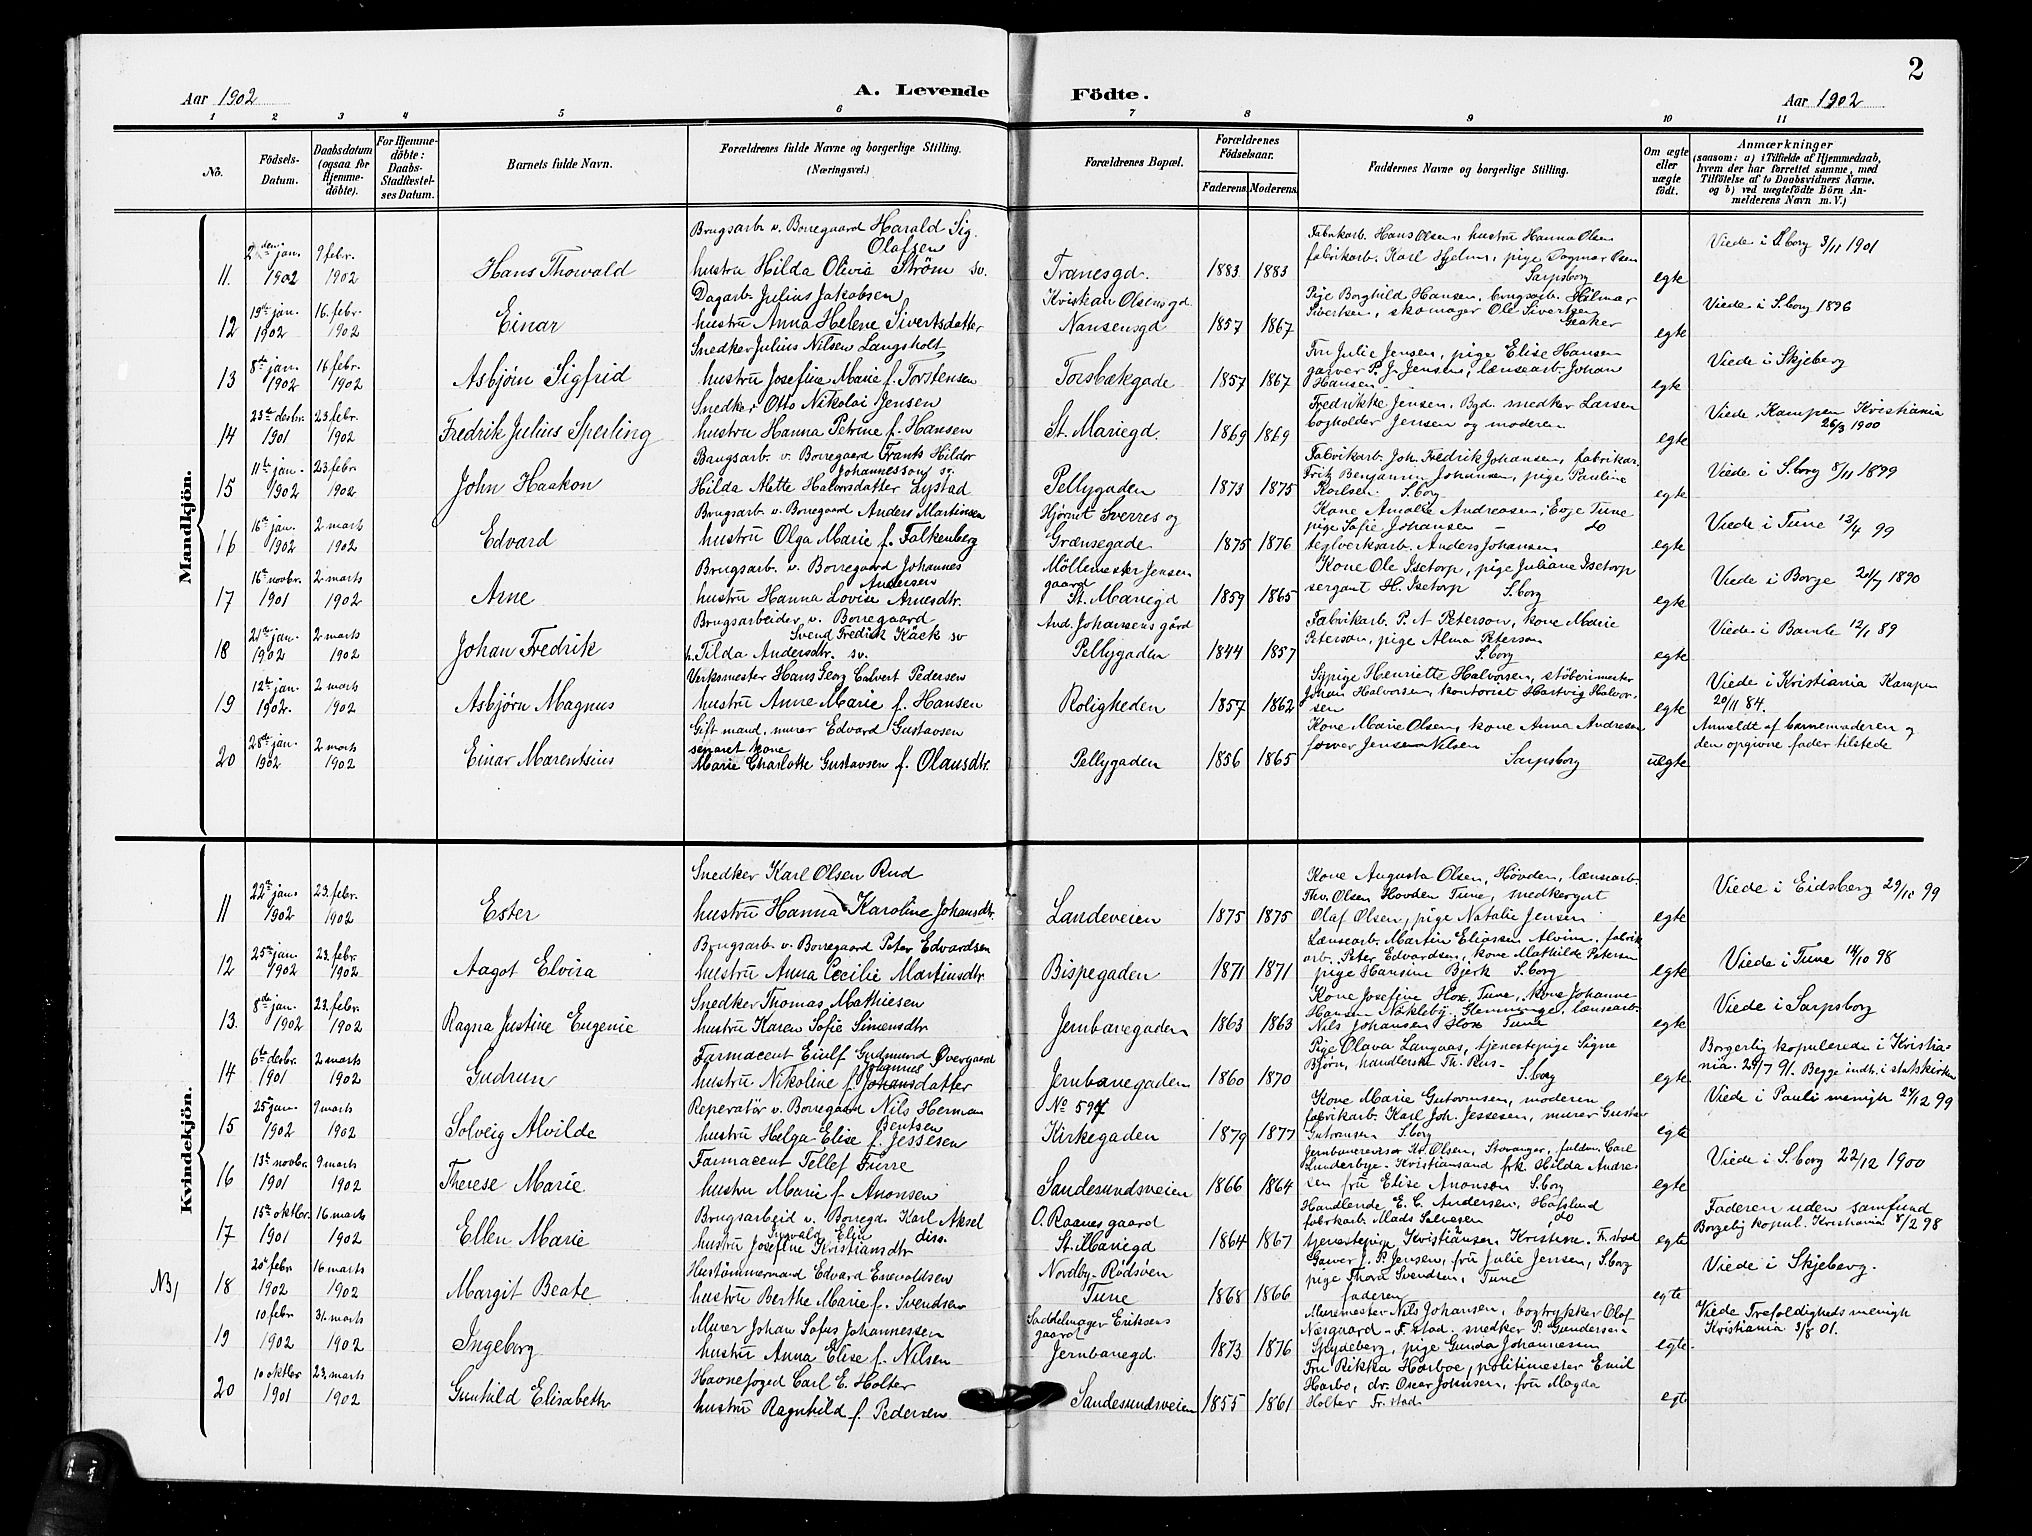 2
Aar 1902
A. Levende
Födte.
Aar 1902
1 2 3 4 5 6 7 8 9 10 11
No.
Födsels-Datum.
Daabsdatum (ogsaa for Hjemmedöbte).
For Hjemmedöbte: Daabs-Stadfæstelses Datum.
Barnets fulde Navn.
Forældrenes fulde Navne og borgerlige Stilling.
(Næringsvei.)
Forældrenes Bopæl.
Forældrenes Födselsaar.
Faderens. Moderens.
Faddernes Navne og borgerlige Stilling.
Om ægte eller uægte födt.
Anmærkninger
(saasom: a) i Tilfælde af Hjemmedaab, hvem der har forrettet samme, med Tilföielse af to Daabsvidners Navne. og b) ved uægtefödte Börn Anmelderens Navn m. V.)
Mandkjön.
Brugsarb. v. Borregaard Harald Sig.
Olafsen
11. jan. 1902 9 febr. 1902 Hans Thorvald hustru Hilda Olivia Ström sv. Tranesgd. 1883 1883
Fabrikarb. Hans Olsen, hustru Hanna Olsen
fabrikarb. Karl Hjelm, pige Dagmar
Sarpsborg egte
Viede i S.borg 3/11 1901
Dagarb. Julius Jakobsen
12 19de jan. 1902 16. febr. 1902 Einar hustru Anna Helene Sivertsdatter
Kristian Olsens gd.
Nansensgd 1857 1867
Pige Borghild Hansen, brugsarb. Hilmar
Sivertsen, skomager Ole Sivertsen
Greaker egte
Viede i S.borg 1896
Snedker Julius Nilsen Langsholt
13 8de jan. 1902 16 febr. 1902 Asbjörn Sigfrid hustru Josefine Marie f. Torstensen Torsbækgade 1857 1867
Fru Julie Jensen, pige Elise Hansen
garver P. J. Jensen, lænsearb. Johan
Hansen egte
Viede i Skjeberg
Snedker Otto Nikolai Jensen
14 23de decbr. 1901 23 febr. 1902 Fredrik Julius Sperling hustru Hanna Petrine f. Hansen St. Mariegd. 1869 1869
Fredrikke Jensen, Bgd. snedker Larsen
bogholder Jensen og moderen egte
Viede Kampen Kristiania
26/3 1900
Brugsarb. v. Borregaard Frants Hilder
Johannesson sv.
15 11te jan. 1902 23. febr. 1902 John Haakon Hilda Alette Halvorsdatter Lystad Pellygaden 1873 1875
Fabrikarb. Joh. Fredrik Johansen, fabrikar.
Fritz Benjamin Johansen, pige Pauline
Karlsen S.borg egte
Viede i S.borg 8/11 1899
Brugsarb. v. Borregaard Anders Martinsen
16 16de jan. 1902 2 marts 1902 Edvard hustru Olga Marie f. Falkenberg
Hjörnet Sverres og
Grænsegade 1875 1876
Kone Amalie Andreasen, Evje Tune
pige Sofie Johansen - do
teglverksarb. Anders Johansen egte
Viede i Tune 13/4 99
Brugsarb. v. Borregaard Johannes
Andersen
17 16de novbr. 1901 2 marts 1902 Arne hustru Hanna Lovise Arnesdtr.
Möllemester Jensen
gaard
St. Mariegd 1859 1865
Kone Ole Isetorp, pige Juliane Isetorp
sergant H. Isetorp S.borg egte
Viede i Borge 1890
Brugsarbeider v. Borregaard
Svend Fredrik Käck sv
18 21de jan. 1902 2 marts 1902 Johan Fredrik h. Tilda Andersdtr. sv.
And. Johansens gård
Pellygaden 1844 1857
Fabrikarb. P. A Peterson, kone Marie
Peterson, pige Alma Peterson
S.borg egte
Viede i Bamle 12/1 89
Verksmester Hans Georg Calvert Pedersen
19 12te jan. 1902. 2 marts 1902 Asbjörn Magnus hustru Anne Marie f. Hansen Roligheden 1857 1862
Sypige Henriette Halvorsen, stöberimester
Johan Halvorsen, kontorist Hartvig Halvor-
sen egte
Viede i Kristiania Kampen
20/11 84.
Gift mand, murer Edvard Gustavsen
separet kone
20 28de jan. 1902 2 marts 1902 Einar Marentsius Marie Charlotte Gustavsen f. Olausdtr. Pellygaden 1856 1865
Kone Marie Olsen, kone Anna Andresen
farver Jensenius Nilsen
Sarpsborg uægte
Anmeldt af barnemoderen og
den opgivne fader tilstede
Kvindekjön.
Snedker Karl Olsen Rud
11 22de jan. 1902 23. febr. 1902 Ester hustru Hanna Karoline Johansdtr. Landeveien 1875 1875
Kone Augusta Olsen, Hövden, lænsearb.
Thv. Olsen Hovden Tune, snedkersvnt
Olaf Olsen, pige Natalie Jensen egte
Viede i Eidsberg 29/12 99
Brugsarb. v. Borregaard Peter Edvardsen
12 25de jan 1902 23. febr. 1902 Aagot Elvira hustru Anna Cecilie Martinsdtr. Bispegaden 1871 1871
Lænsearb. Martin Eliassen Alvim, fabrik
arb. Peter Edvardsen, kone Mathilde Petersen
pige Hansine Bjerk S.borg egte
Viede i Tune 14/10 98
Snedker Thomas Mathiesen
13. 8de jan. 1902 23. febr. 1902 Ragna Justine Eugenie hustru Karen Sofie Simensdtr Jernbanegaden 1863 1863
Kone Josefine Hox, Tune, kone Johanne
Hansen Nökleby, Glemminge, lænsearb.
Nils Johansen Hox Tune egte
Viede i Sarpsborg
Farmacent Eiulf Gudmund Övergaard
Johannes
14 6te decbr. 1901 2 marts 1902 Gudrun hustru Nikoline f. Johansdatter Jernbanegaden 1860 1870
Pige Olava Langaas, tjenestepige Signe
Björn, handlerske Th. Rus-
S.borg egte
Borgerlig kopulerede i Kristia-
nia. 24/7 91. Begge indh. i statskirken
Reperatör v. Borregaard Nils Herman
Bentsen
15 25de jan. 1902 9 marts 1902 Solveig Alvilde hustru Helga Elise f. Jessesen
No 597
Kirkegaden 1879 1877
Kone Marie Gutormsen, moderen
fabrikarb. Karl Joh. Jessesen, murer Gustav
Gutormsen S.borg egte
Viede i Pauli menigh 24/12 99
Farmacent Tellef Furre
16 13de novbr. 1901 9 marts 1902 Therese Marie hustru Marie f. Anonsen Sandesundsveien 1866 1864
Jernbanerevisor Kr. Olsen, Stavanger, fuldm. Carl
Lunderbye. Kristiansand frk Hilda Andre-
sen fru Elise Anonsen S.borg egte
Viede i S.borg 22/12 1900
Brugsarbeid v. Borregd. Karl Aksel
Ingvald Elin diss.
17 15de oktbr. 1901 16 marts 1902 Ellen Marie hustru Josefine Kristiansdtr
O. Raanes gaard
St. Mariegd 1864 1867
Handlende E. C. Andersen, Hafslund
fabrikarb. Mads Salvesen do
tjenestepige Kristiansen Kristine. F.stad egte
Faderen uden samfund
Borgelig kopul. Kristiania 8/2 98
NB/
Hustömmermand Edvard Enevoldsen
18 febr 1902 16 marts 1902 Margit Beate hustru Berthe Marie f. Svendsen
Nordby-Rödsöen
Tune 1868 1866
Garver J. P. Jensen, fru Julie Jensen, S.borg
pige Thora Svendsen, Tune
faderen egte
Viede i Skjeberg.
Murer Johan Sofus Johannessen
19 10 febr 1902 31. marts 1902 Ingeborg hustru Anna Elise f. Nilsen
Saddelmager Eriksens
gaard
Jernbanegd. 1873 1876
Muremester Nils Johansen, bogtrykker Olaf
Næsgaard - F.stad. snedker P. Gundersen
Spydeberg, pige Gunda Johannesen egte
Viede Trefoldigheds menigh
Kristiania 3/8 01.
Havnefoged Carl E. Holter
20 10 oktbr 1901 23. marts 1902 Gunhild Elisabeth hustru Ragnhild f. Pedersen Sandesundsveien 1855 1861
Fru Rikka Harboe, politimester Emil
Harbo, dr. Oscar Johnsen, fru Magda
Holter Fr.stad egte